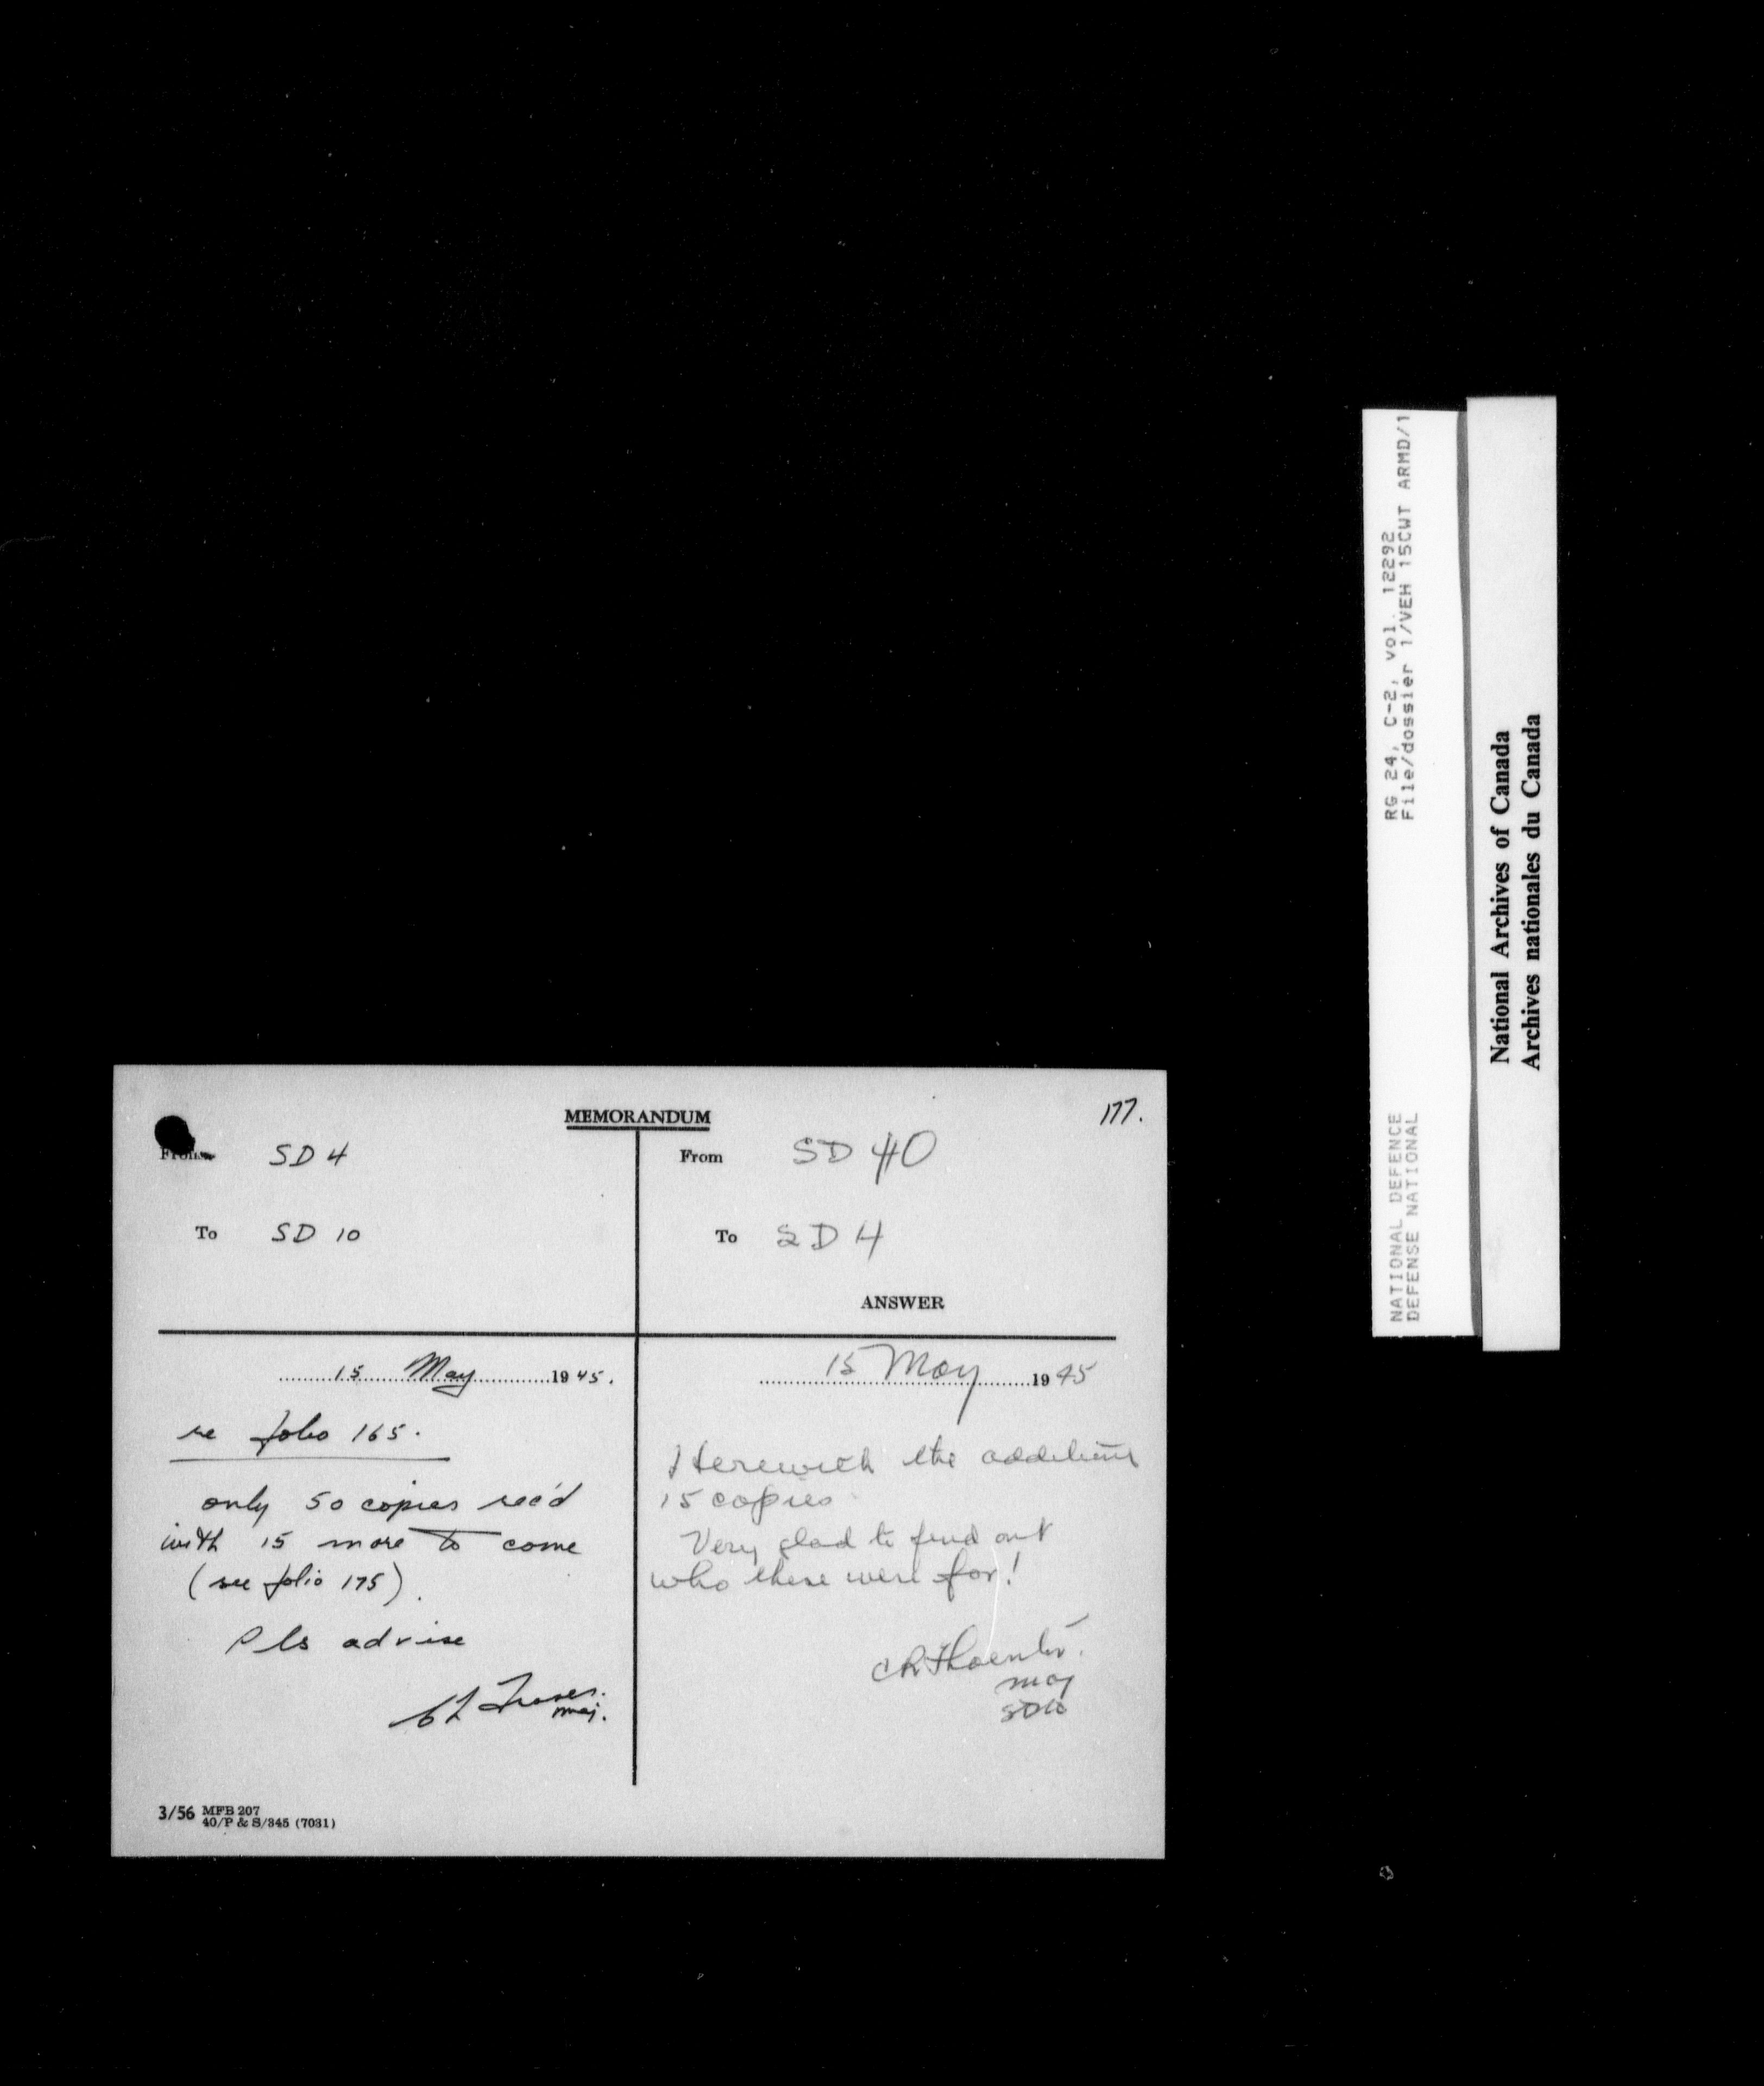 MEMORANDUM
177.
From SD 4
To SD 10
15 May 1945.
re folio 165.
only 50 copies rec'd
with 15 more to come
(see folio 175).
Pls advise
Maj.
From SD 10
To SD 4
ANSWER
15 May 1945
Herewith the additional
15 copies
Very glad to find out
who these were for!
Maj
SD10
3/56 MFB 207
40/P & S/345 (7031)
RG 24, C-2, vol. 12292
File/dossier 1/VEH 15CWT ARMD/1
NATIONAL DEFENCE
DEFENSE NATIONAL
National Archives of Canada
Archives nationales du Canada